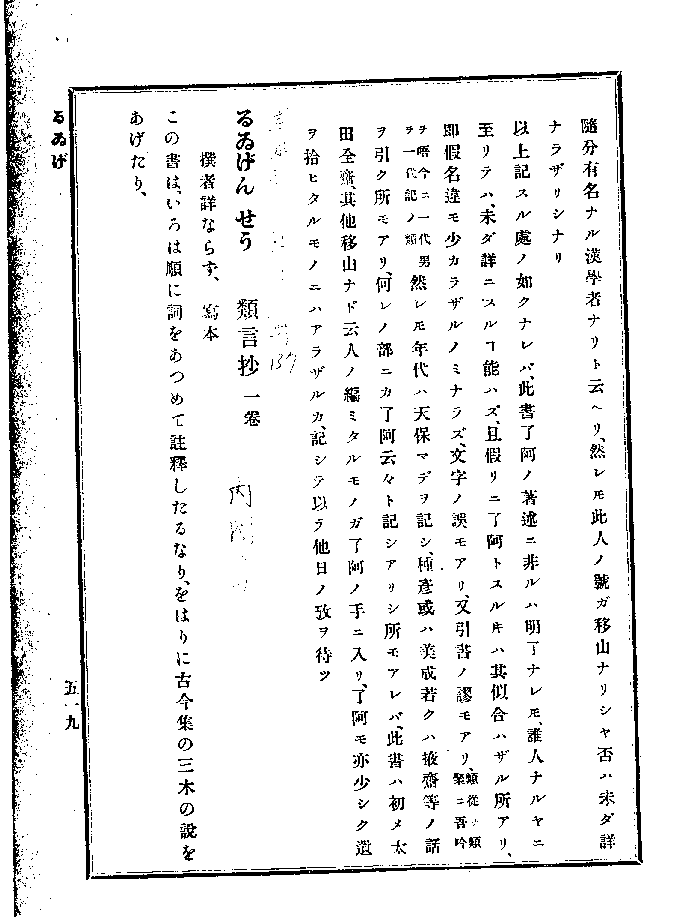 隨分有名ナル漢學者ナリト云ヘリ、然レ𪜈此人ノ號ガ移山ナリシヤ否ハ未ダ詳
ナラザリシナリ
以上記スル處ノ如クナレバ、此書了阿ノ著述ニ非ルハ明了ナレ𪜈、誰人ナルヤニ
至リテハ、未ダ詳ニスルヿ能ハズ、且假リニ了阿トスル𪜈ハ其似合ハザル所アリ、
即假名違モ少カラザルノミナラズ、文字ノ誤モアリ、又引書ノ謬モアリ、類從ヲ類聚ニ吾吟
ヲ晤今ニ一代男ヲ一代記ノ類然レ𪜈年代ハ天保マデヲ記シ、種彥或ハ美成若クハ掖齋等ノ話
ヲ引ク所モアリ、何レノ部ニカ了阿云々ト記シアリシ所モアレバ、此書ハ初メ太
田全齋、其他移山ナド云人ノ編ミタルモノガ了阿ノ手ニ入リ、了阿モ亦少シク遺
ヲ拾ヒタルモノニハアラザルカ、記シテ以テ他日ノ攷ヲ待ツ
137
るゐげん せう 類言抄 一卷
內閣
撰者詳ならず、寫本
この書は、いろは順に詞をあつめて註釋したるなり、をはりに古今集の三木の說を
あげたり、
るゐげ
五一九